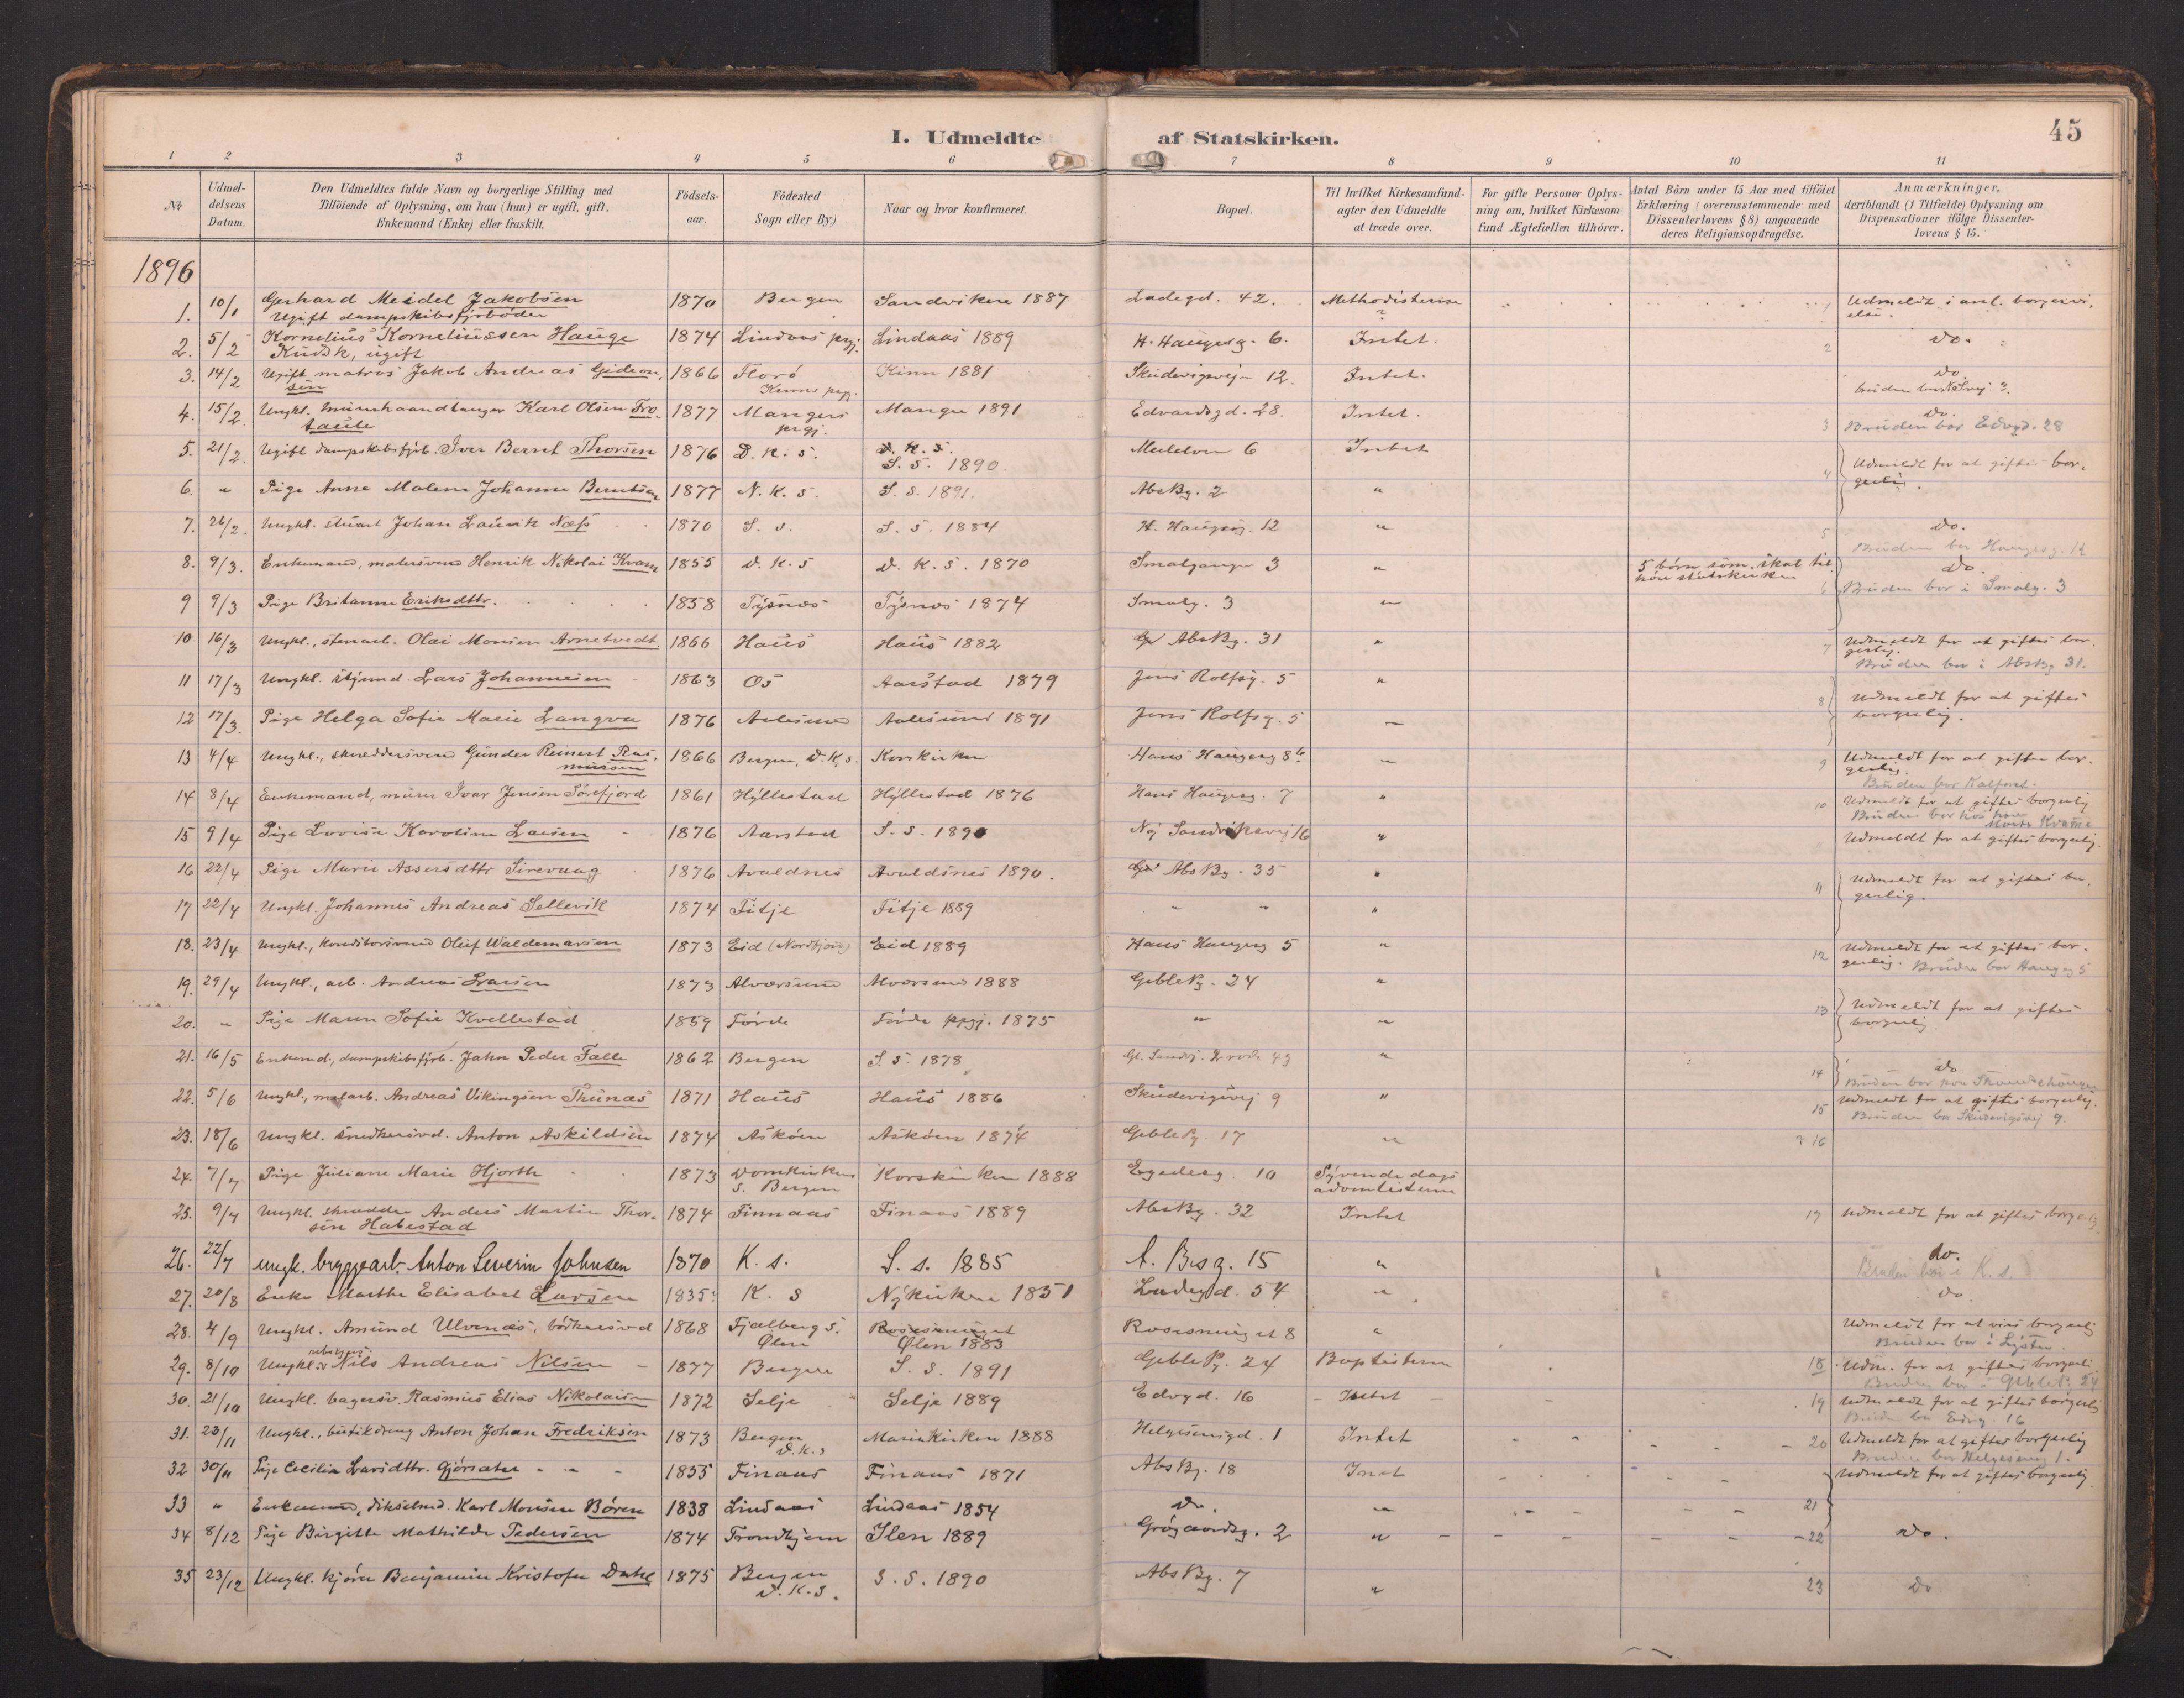 45
I. Udmeldte af Statskirken.
1 2 3 4 5 6 7 8 9 10 11
No
Udmeldelsens Datum.
Den Udmeldtes fulde Navn og borgerlige Stilling med Tilföiende af Oplysning, om han (hun) er ugift, gift, Enkemand (Enke) eller fraskilt.
Födsels-aar.
Födested Sogn eller By)
Naar og hvor konfirmeret.
Bopæl.
Til hvilket Kirkesamfund agter den Udmeldte at træde over.
For gifte Personer Oplysning om, hvilket Kirkesamfund Ægtefællen tilhörer.
Antal Börn under 15 Aar med tilföiet Erklæring (overensstemmende med Dissenterlovens § 8) angaaende deres Religionsopdragelse.
Anmærkninger, deriblandt (i Tilfælde) Oplysning om Dispensationer ifölge Dissenterlovens § 15.
1896
1. 10/1 Gerhard Meidel Jakobsen Ugift dampskibsfyrböder 1870 Bergen Sandviken 1887 Ladegd. 42. Methodisterne ? 1 Udmeldt i anl. borgervi. else.
2. 5/2 Kornelius Korneliussen Hauge Kudsk, ugift 1874 Lindaas prgj. Lindaas 1889 H. Haugesg. 6. Intet. 2 do.
3. 14/2 Ugift matros Jakob Andreas Gideon, sen 1866 Florö Kinns prgj. Kinn 1881 Skudevigsvejn 12. Intet. do
4. 15/2. Ungkl. murhaandlanger Karl Olsen Fro- taule 1877 Mangers prgj. Manger 1891 Edvardsgd. 28. Intet. 3 do. Bruden bor Edvgd. 28
5. 21/2. Ugift dampskibsfyrb. Iver Bernt Thorsen 1876 D. K. S. D. K. S. S. S. 1890. 6 Intet 4 Udmeldt for at giftes bor. gerlig.
6. " Pige Anne Malene Johanne Berntsen 1877 N. K. S. S. S. 1891. AbsBg. 2 "
7. 26/2. Ungkl. stuart Johan Lauvik Næss 1870 S. S. S. S. 1884 H. Haugesg. 12 " 5 do. Bruden bor Haugesg. 12
8. 9/3. Enkemand, malersvend Henrik Nikolai Kvam 1855 D. K. S D. K. S. 1870 Smalgangen 3 " 5 börn som skal til. höre statskirken 6 do. Bruden bor i Smalg. 3
9 9/3 Pige Britanne Eriksdttr. 1858 Tysnæs Tysnæs 1874 Smalg. 3 "
10 16/3 Ungkl., stenarb. Olai Monsen Arnetvedt 1866 Haus Haus 1882 AbsBg. 31 " 7 Udmeldt for at giftes bor. gerlig. Bruden bor i AbsBg 31.
11 17/3 Ungkl. stjmd. Lars Johannesen 1863 Os Aarstad 1879 Jens Rolfsg. 5 " 8 Udmeldt for at giftes borgerlig.
12 17/3. Pige Helga Sofie Marie Langva 1876 Aalesund Aalesund 1891 Jens Rolfsg. 5 "
13 4/4 Ungkl., skreddersvend Gunder Reinert Ras- mussen 1866 Bergen, D. K. S. Korskirken Hans Haugesg 8 b " 9 Udmeldt for at giftes bor. gerlig. Bruden bor Kalfaret.
14 8/4 Enkemand, murer Ivar Jensen Sörefjord 1861 Hyllestad Hyllestad 1876 Hans Haugesg. 7 " 10 Udmeldt for at giftes borgerlig Bruden bor hos
15 9/4 Pige Lovise Karoline Larsen 1876 Aarstad S. S. 1890 Ny Sandviksvej 16 " Udmeldt for at giftes borgerlig.
16 22/4 Pige Marie Assersdttr Sirevaag 1876 Avaldnes Avaldsnes 1890. AbsBg. 35 " 11 Udmeldt for at giftes bor. gerlig.
17 22/4 Ungkl. Johannes Andreas Sellevik 1874 Fitje Fitje 1889 " " "
18. 23/4 Ungkl., konditorsvend Oluf Waldemarsen 1873 Eid (Nordfjord) Eid 1889 Hans Haugesg 5 " 12 Udmeldt for at giftes bor. gerlig. Bruden bor Haugesg 5
19. 29/4 Ungkl., arb. Andreas Larsen 1873 Alversund Alversund 1888 Geble Pg. 24 " 13 Udmeldt for at giftes borgerlig
20. " Pige Maren Sofie Kvellestad 1859 Förde Förde prgj. 1875 " "
21. 16/5 Enkemd., dampskibsfyrb. Jahn Peder Falle 1862 Bergen S. S. 1878 43 " 14 do.
22. 5/6 Ungkl., malarb. Andreas Vikingsen Thunæs 1871 Haus Haus 1886 Skudevigsvej 9 " 15 Udmeldt for at giftes borgerlig. Bruden bor Skudevigsvej 9.
23. 18/6 Ungkl. snedkersvd. Anton Askildsen 1874 Asköen Asköen 1874 Geble Pg. 17 " 16
24. 7/7 Pige Juliane Marie Hjorth 1873 Domkirkens S. Bergen Korskirken 1888 Egedesg. 10 Syvende dags adventisterne
25. 9/7 Ungkl. skredder Anders Martin Thor- sen Habestad 1874 Finnaas Finaas 1889 AbsBg. 32 Intet 17 Udmeldt for at giftes borgerlig
26. 22/7 ungk. bryggearb. Anton Severin Johnsen 1870 K. s. S. s. 1885 A. Bs g. 15 " do. Bruden bor i K. s.
27. 20/8 Enke Marthe Elisabet Larsen 1835 K. S Nykirken 1851 Ladegd. 54 " do.
28. 4/9 Ungkl. Amund Ulvenæs, bödkersvd 1868 Fjælberg S. Ölen Rosesmuget Ölen 1883 Rosesmuget 8 " Udmeldt for at vies borgerlig Bruden bor i Lyster.
29. 8/10 Ungkl. Nils Andreas Nilsen 1877 Bergen S. S. 1891 Geble Pg. 24 Baptisterne 18 Udm. for at giftes borgerlig. Bruden bor i Geble Pg 24
30. 21/10 Ungkl. bagersv. Rasmus Elias Nikolaisen 1872 Selje Selje 1889 Edvgd. 16 Intet 19 Udmeldt for at giftes borgerlig Bruden bor Edvg. 16
31. 23/11 Ungkl., butikdreng Anton Johan Fredriksen 1873 Bergen D. K. S Mariekirken 1888 Helgesensgd. 1 Intet 20 Udmeldt for at giftes borgerlig Bruden bor Helgesensg 1.
32 30/11 Pige Cecilia Larsdttr. Gjörsater 1855 Finaas Finaas 1871 AbsBg. 18 Intet 21 Udmeldt for at giftes borgerlig
33 " Enkemand, Karl Monsen Bören 1838 Lindaas Lindaas 1854 Do. "
34 8/12 Pige Birgitte Mathilde Pedersen 1874 Trondhjem Ilen 1889 Grögaardsg. 2 " 22 do.
35 23/12 Ungkl. kjörer Benjamin Kristofer Dahl 1875 Bergen D. K. S. S. S. 1890 AbsBg. 7 " 23 do